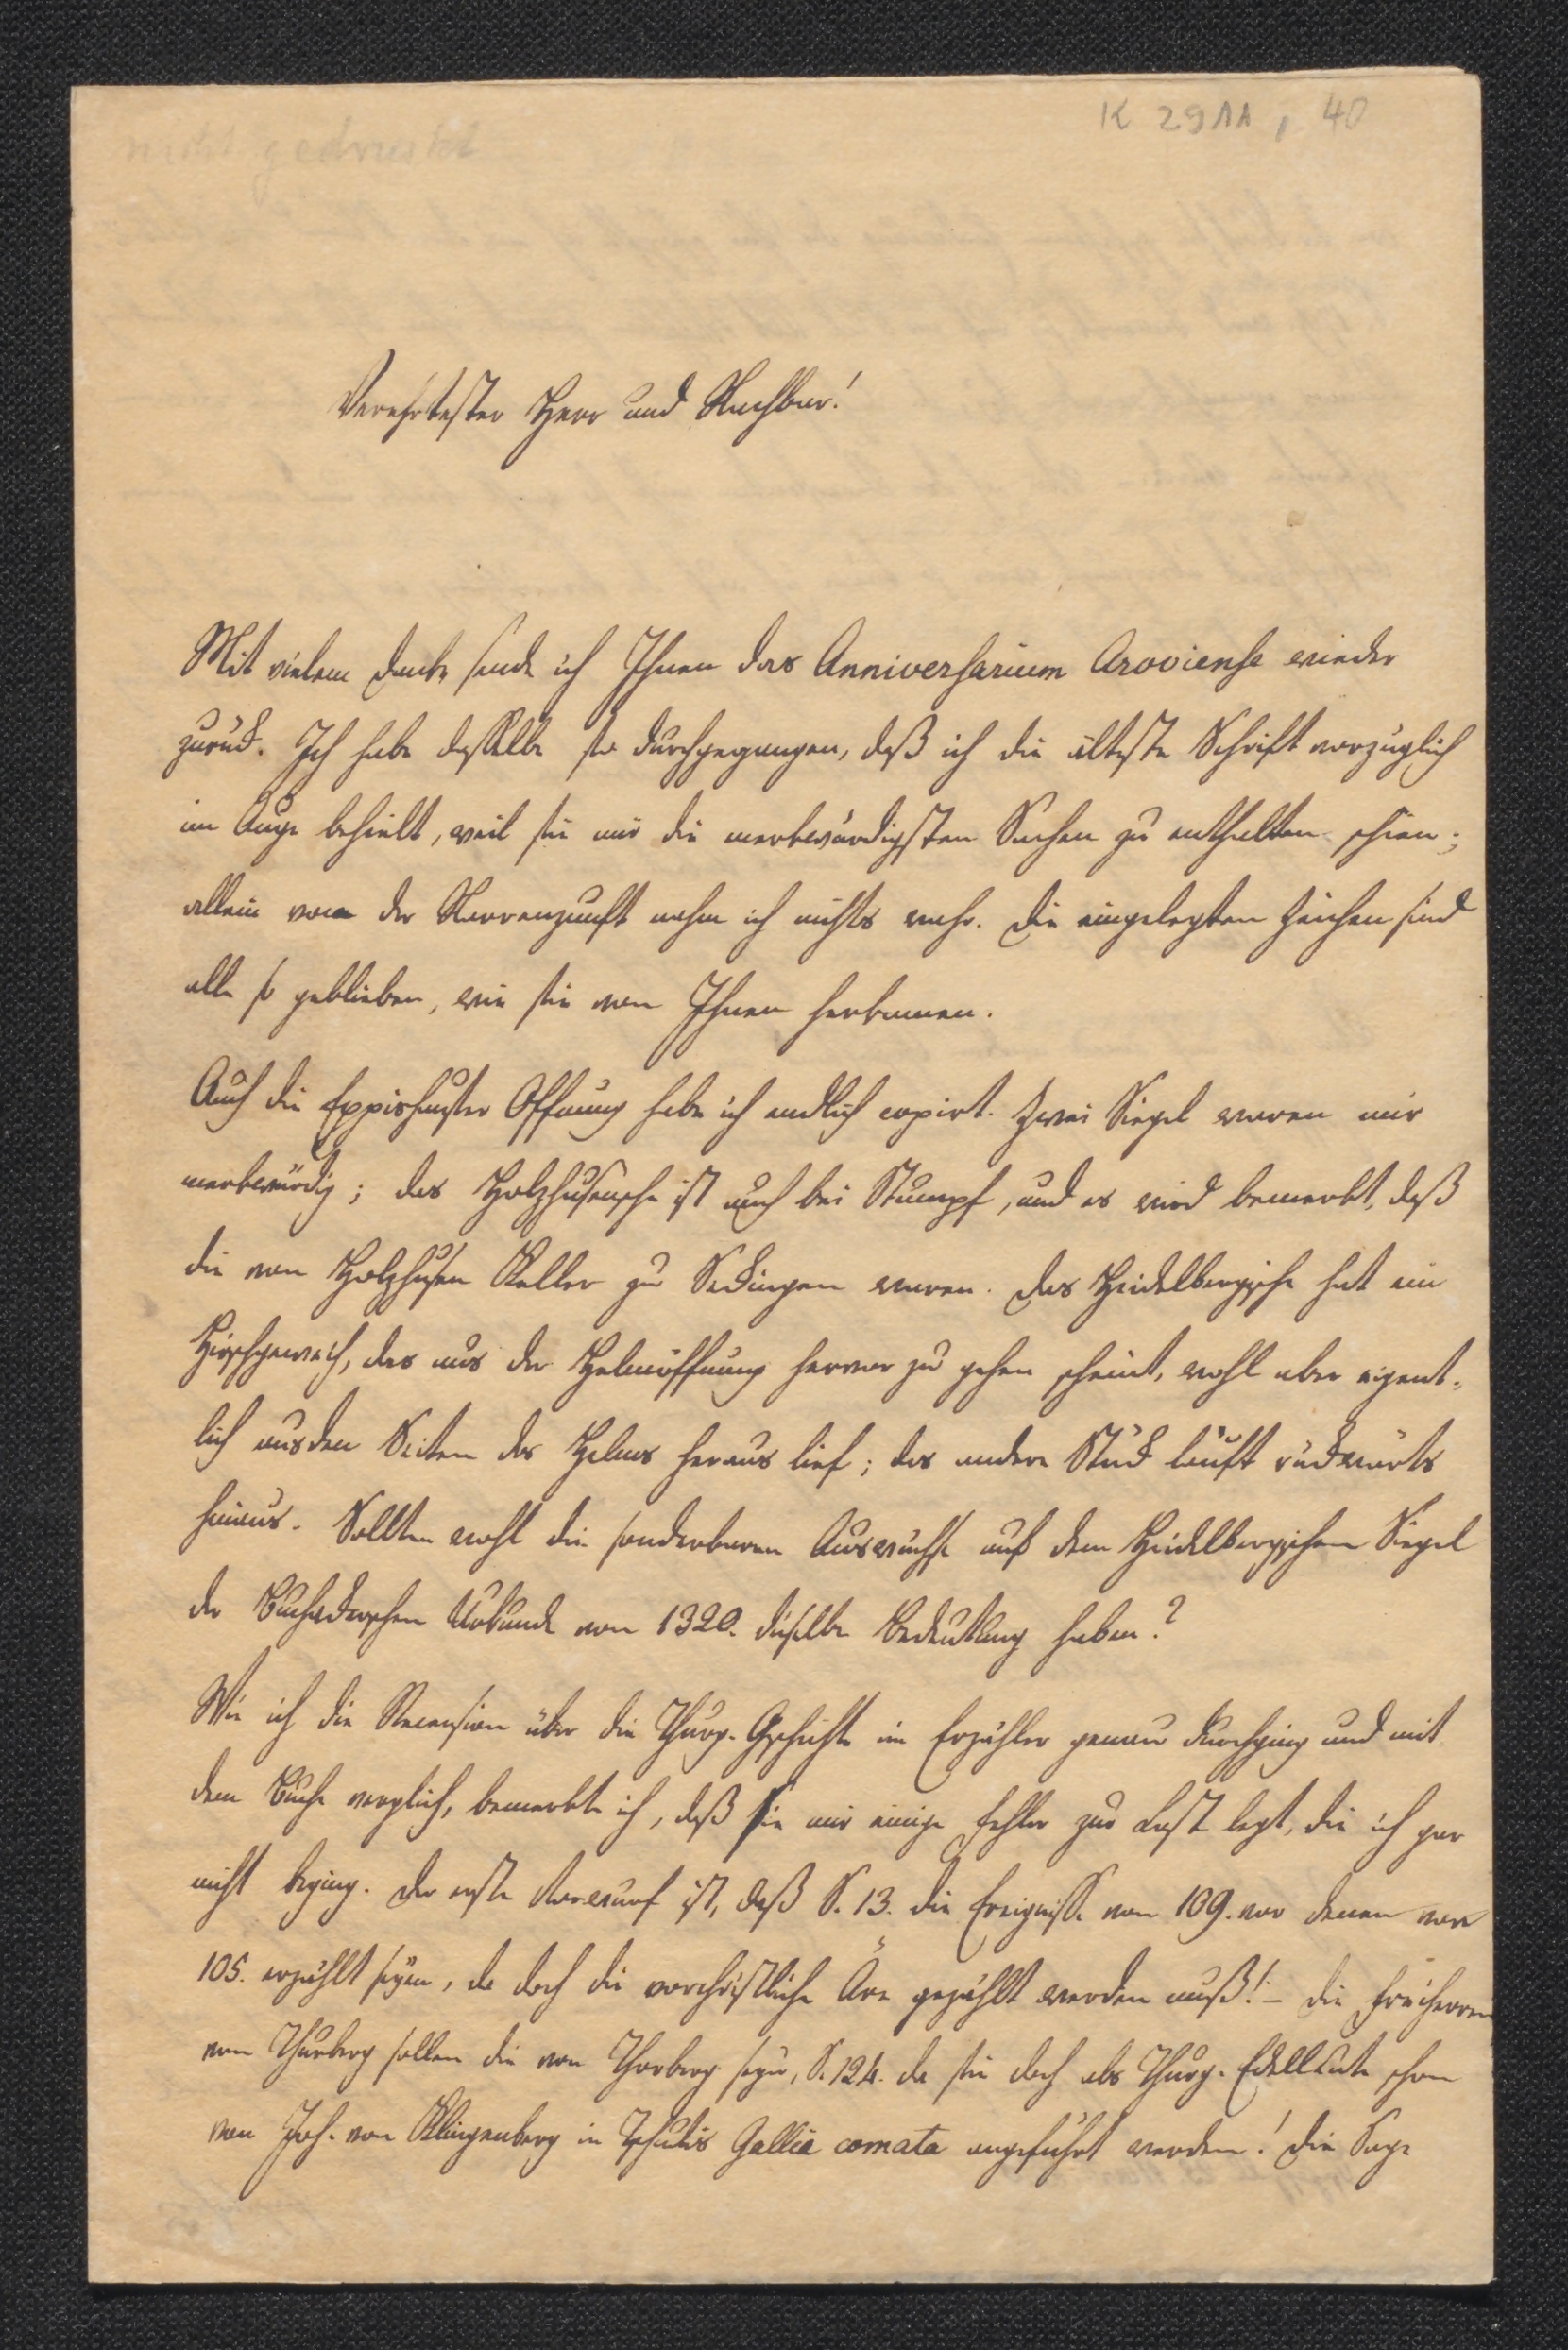 K 29AA, 40
nicht gedruckt
Verehrtester Herr und Nachbar!
Mit vielem Danke sende ich Ihnen das Anniversarium Aroviense wieder
zurück. Ich habe dasselbe so durchgegangen, daß ich die älteste Schrift vorzüglich
im Auge behielt, weil sie mir die merkwürdigsten Sachen zu enthalten schien;
allein von der Narrenzunft nahm ich nichts wahr. Die eingelegten Zeichen sind
alle so geblieben, wie sie von Ihnen herkamen.
Auch die Eppishauser Offnung habe ich endlich copirt. Zwei Siegel waren mir
merkwürdig; das Holzhusensche ist auch bei Stumpf, und es wird bemerkt, daß
die von Holzhusen Keller zu Sekingen waren. Das Heidelbergische hat ein
Hirschgeweih, das aus der Helmöffnung hervor zu gehen scheint, wohl aber eigent-
lich aus den Seiten des Helms heraus lief; das andere Stück läuft rückwärts
hinaus. Sollten wohl die sonderbaren Auswüchse auf dem Heidelbergischen Siegel
der Urkunde von 1320. dieselbe Bedeutung haben?
Wie ich die Recension über die Thurg. Geschichte im Erzähler genau durchging und mit
dem Buche verglich, bemerkte ich, daß sie mir einige Fehler zur Last legt, die ich gar
nicht beging. Der erste Vorwurf ist, daß S. 13. die Ereignisse von 109. vor denen von
105. erzählt seyen, da doch die vorchristliche Äre gezählt werden muß! – Die Freiherren
von Thurberg sollen die von Thorberg seyn, S. 124. da sie doch als Thurg. Edelleute schon
von Joh. von Klingenberg in Tschudis Gallia comata angeführt werden! Die Sage